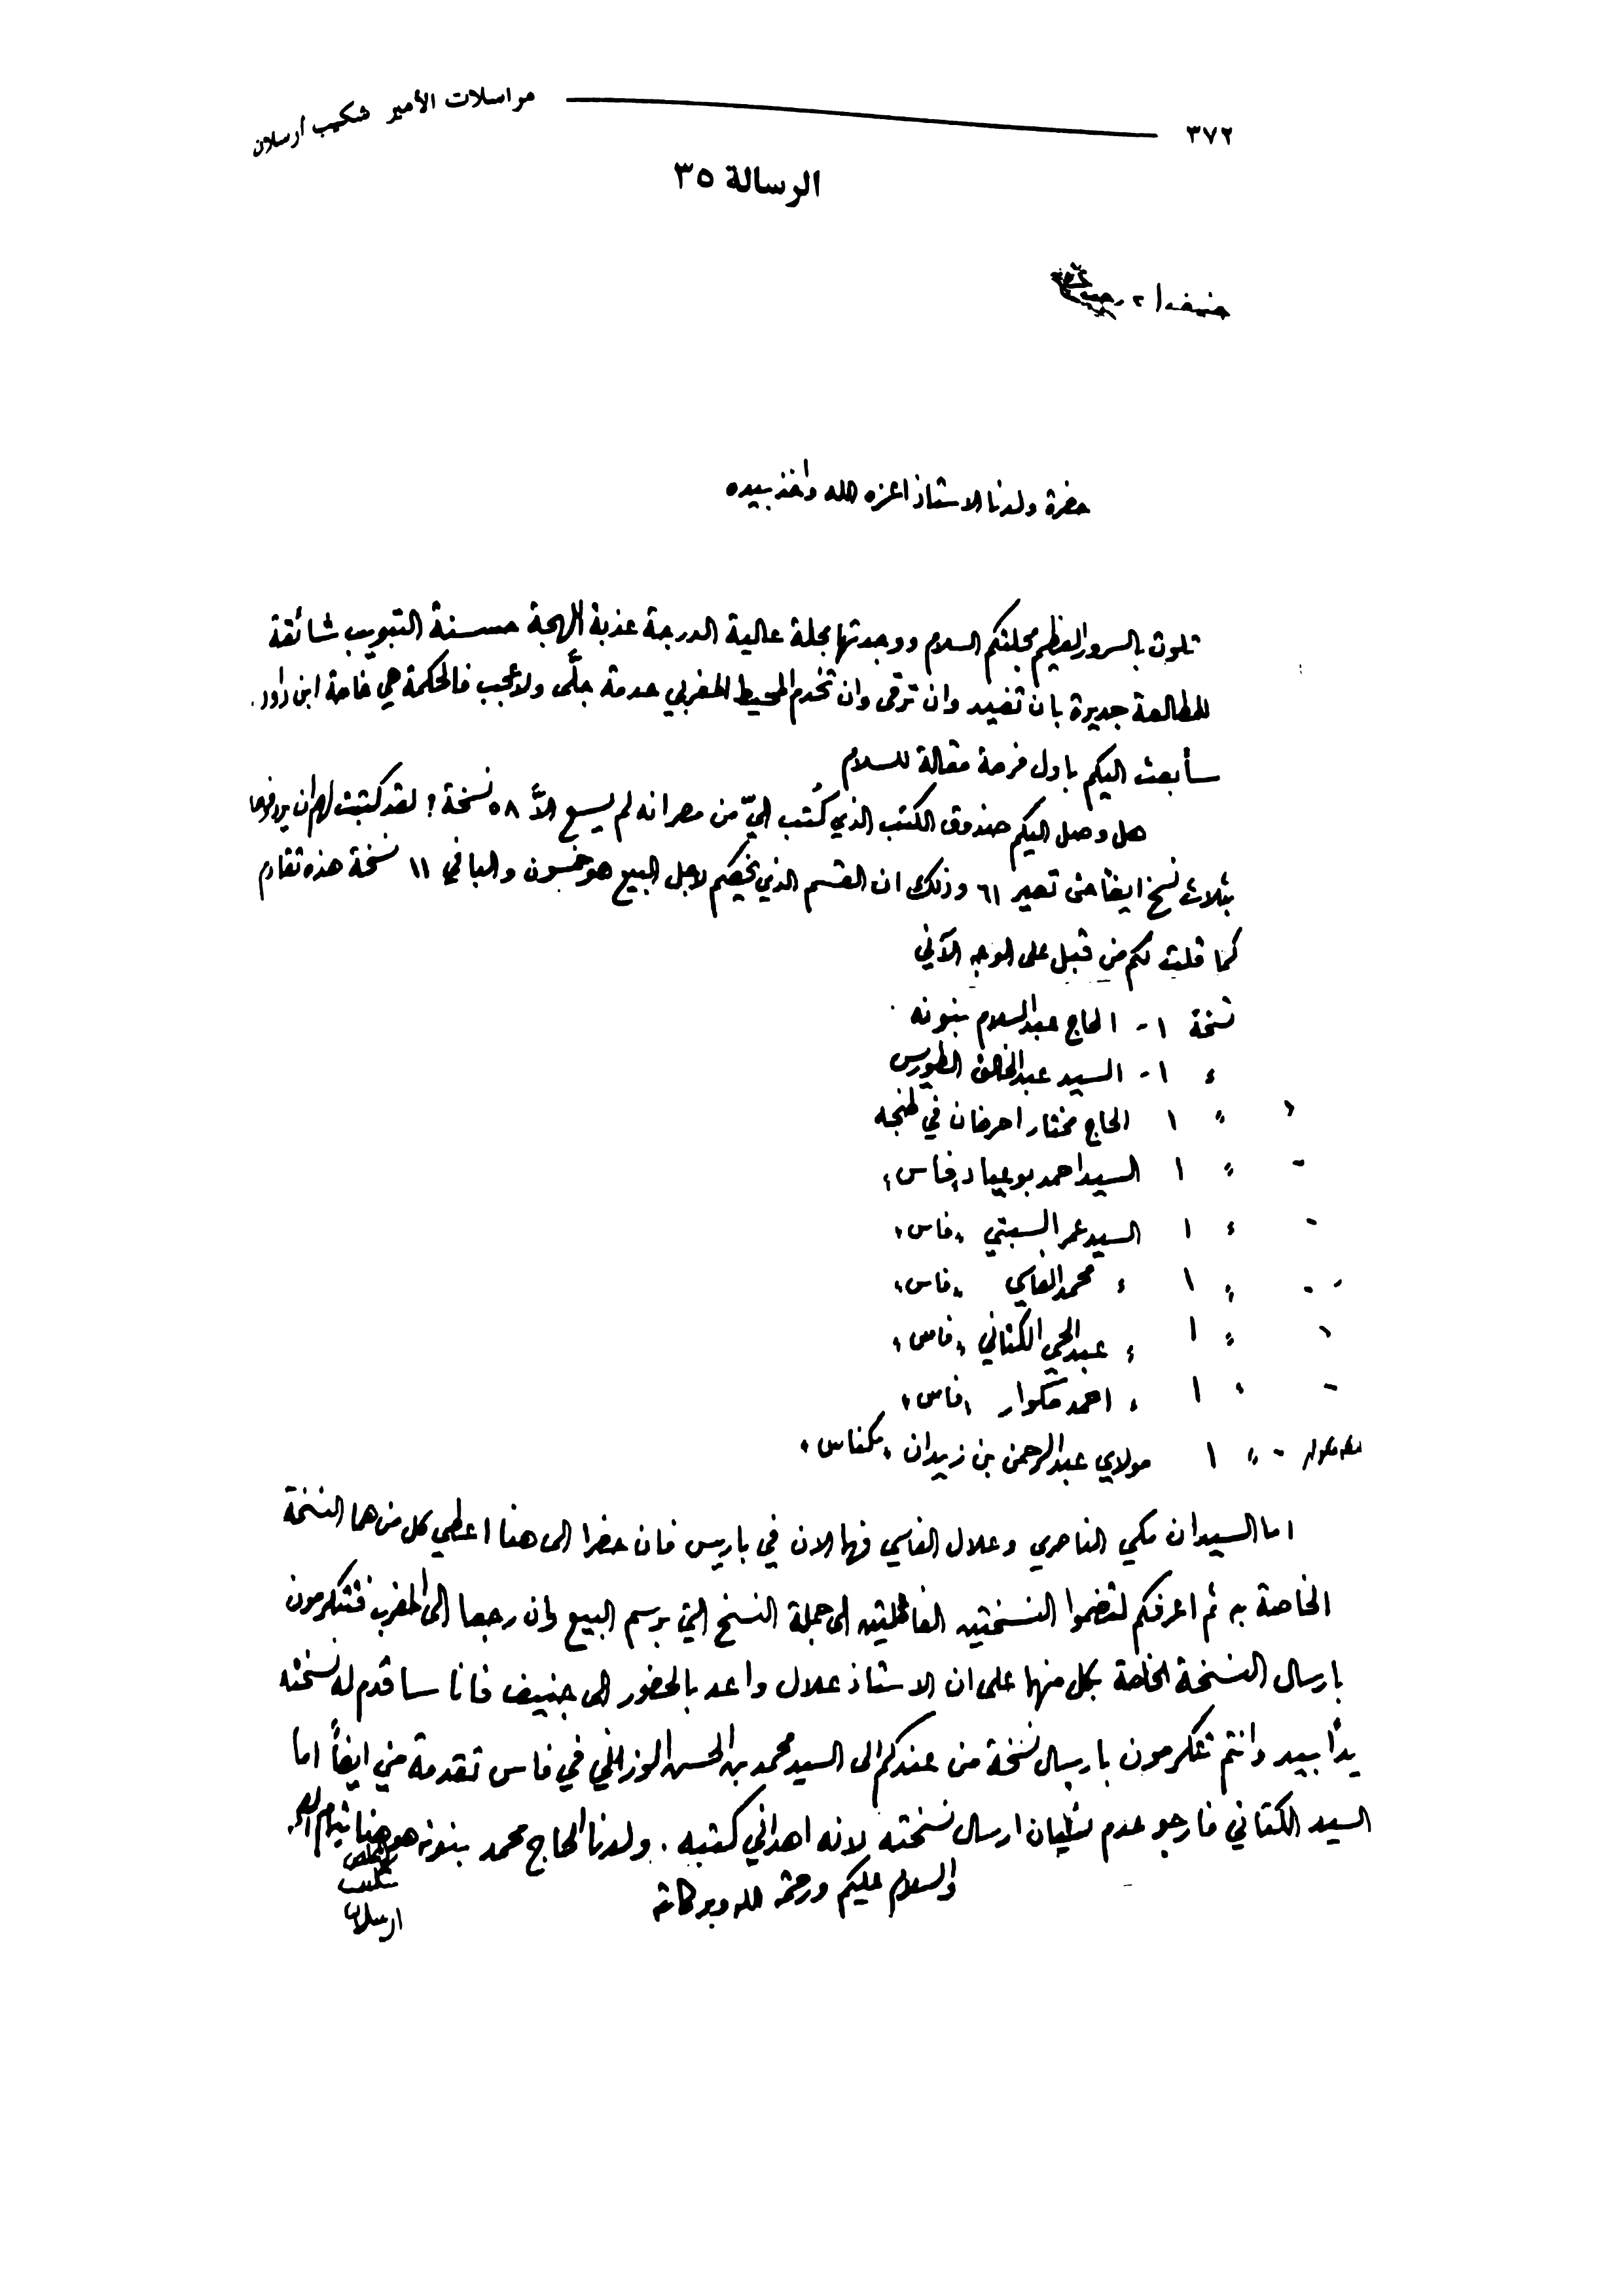 ٣٧٢ مراسلات الأمير شكيب أرسلان
الرسالة ٣٥
جنيف ٢ رجب
حضرة ولدنا الاستاذ اعزه الله واخذ بيده
تلوت بالسرور العظيم مجلتكم السلام ووجدتها مجلة عالية الدرجة عذبة اللهجة حسنة التبويب شائقة
للمطالعة جديرة بان تفيد وان ترقى وان تخدم المحيط المغربي خدمة جلَّى ولا عجب فالحكمة هي خاصة ابن داود.
سأبعث اليكم باول فرصة مقالة للسلام
هل وصل اليكم صندوق الكتب الذي كُتب اليّ من مصر انه لم يسع الاَّ ٥٨ نسخة؟ لقد كتبت لهم ان يردفوها
بثلاث نسخ ايضا حتى تصير ٦١ وذلك ان القسم الذي يخصكم لاجل البيع هو خمسون والباقي ١١ نسخة هذه تقادم
كما قلت لكم من قبل على الوجه الآتي
نسخة ١ - الحاج عبد السلام بنونه
" ١ - السيد عبد الخالق الطوريس
" ١ الحاج مختار احرضان في طنجه
" ١ السيد احمد بوعياد «فاس»
" ١ السيد عمر السبتي «فاس»
" ١ " محمد الفاسي «فاس»
" ١ " عبد الحي الكتاني «فاس»
" ١ " احمد مكوار «فاس»
" ١ مولاي عبد الرحمن بن زيدان «مكناس»
اما السيدان مكي الناصري وعلال الفاسي فهما الان في باريس فان حضرا الى هنا اعطي كل منهما النسخة
الخاصة به ثم اعرفكم لتضموا النسختين الفاضلتين الى جملة النسخ التي برسم البيع وان رجعا الى المغرب فتتكرمون
بارسال النسخة الخاصة بكل منهما على ان الاستاذ علال واعد بالحضور الى جنيف فانا ساقدم له نسخته
يداً بيد وانتم تتكرمون بارسال نسخة من عندكم الى السيد محمد بن الحسن الوزاني في فاس تقدمة مني ايضاً اما
السيد الكتاني فارجو عدم نسيان ارسال نسخته لانه اهداني كتبه. ولدنا الحاج محمد بنونه هو هنا
والسلام عليكم ورحمة الله وبركاته
المخلص
شكيب
ارسلان